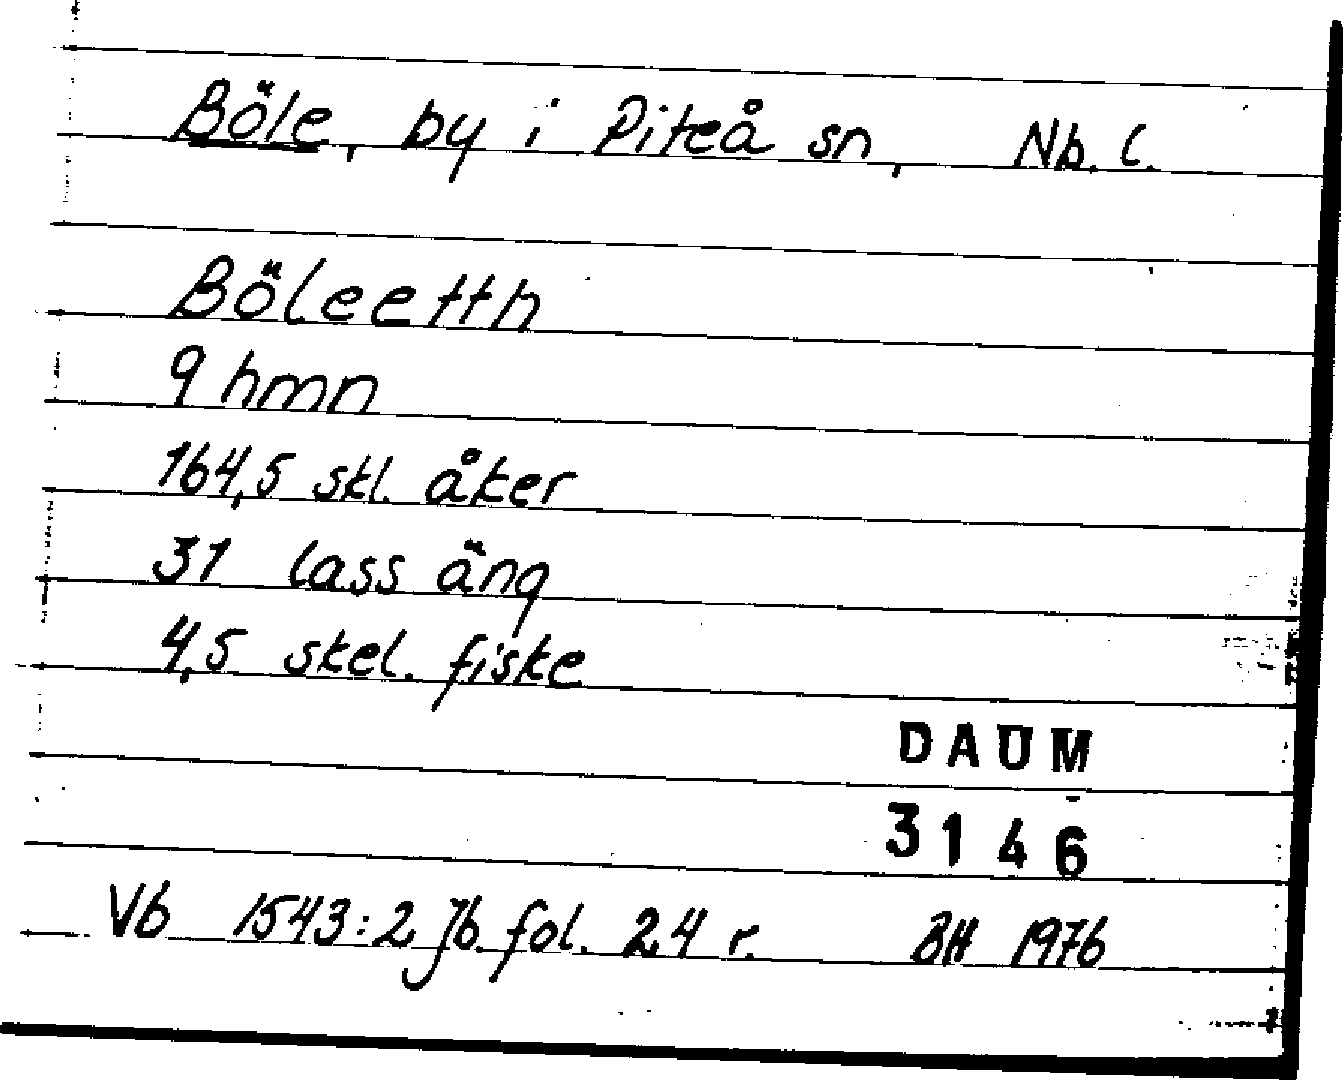 Böle, by i Piteå sn, Nb. l.
Böleetth
9 hmn
164,5 skl. åker
31 lass äng
4,5 skel. fiske
DAUM
3146
Vb 1543:2 Jb. fol. 24 r. BH 1976